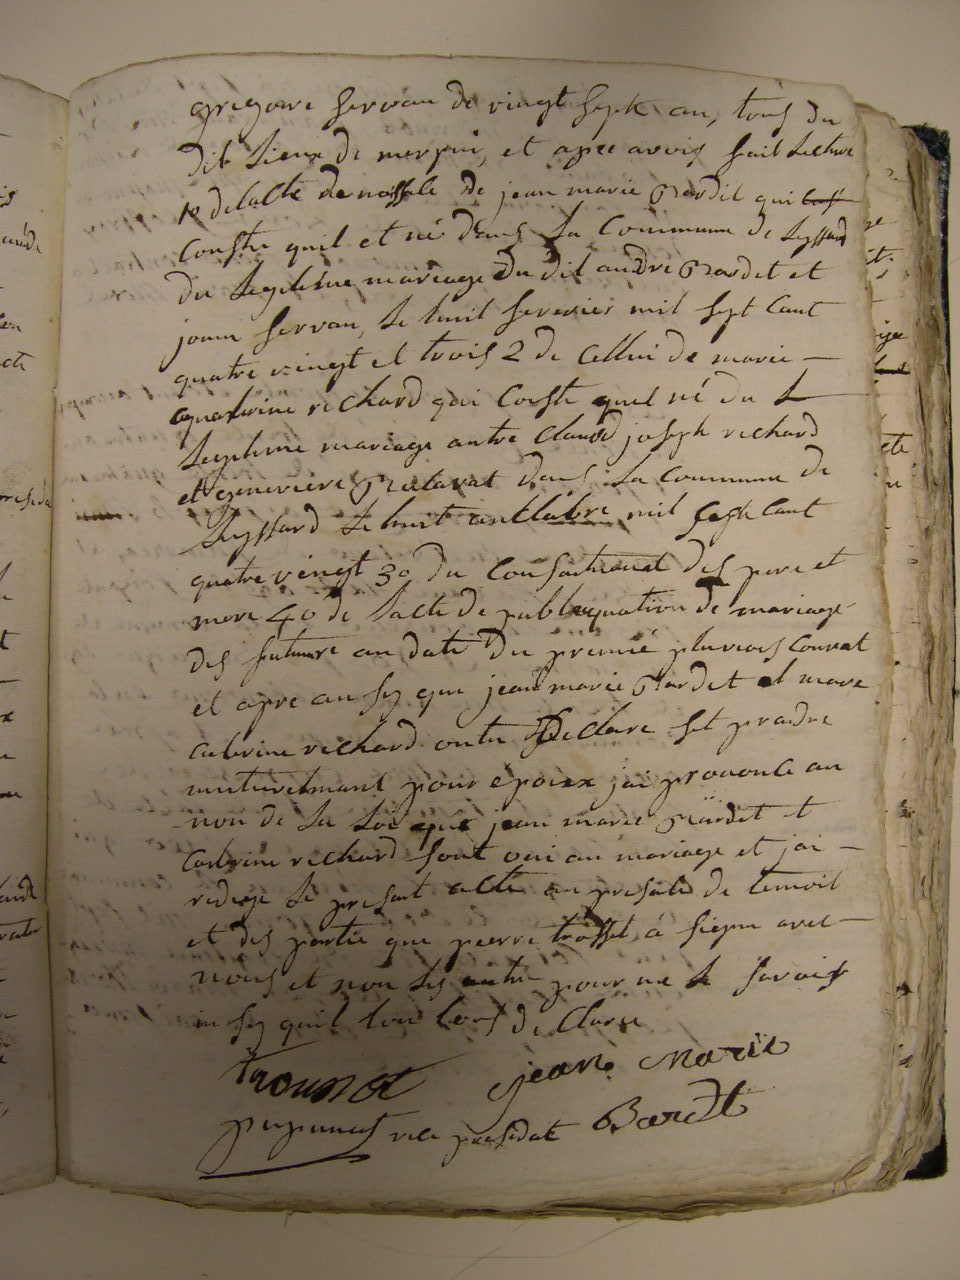 gregoire servan de vingt sept an, tous du
dit Lieux de merpui, et apres avoir fait Lecture
1º delacte de nossale de jean marie Bardet qui
Conste quil et né dans La Commune de Leyssard
du Legitime mariage du dit andre Bardet et
joann servan, Le huit fevrier mil sept Cant
quatre vingt et trois 2 de Cellui de marie
quaterine richard qui Conste quil né du L
Legitime mariage antre Claude joseph richard
et genevieve dans La Commune de
Leyssard Le huit mil sept Cant
quatre vingt 3º du Consantement des pere et
mere 4º de Lacte de publiquation de mariage
des future an date du premié pluvios Courat
et apre ansy que jean marie Bardet et marie
Caterine richard ontu declare set prandre
mutuelmant pour epoux jai prononce au
non de La Loi que jean marie Bardet et
Caterine richard sont uni an mariage et jai
redige Le present acte an presance de temoit
et des partie que pierre a signe avec
nous et non Les autre pour ne Le savoir
insy quil lon tous de Clare
jean Marie
vice presidat Bardet